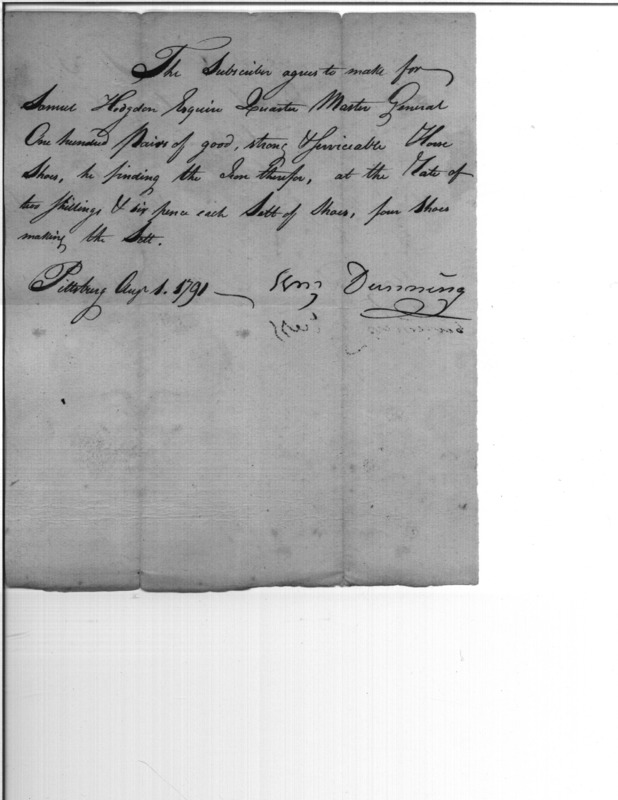 The Subscriber agrees to make for
Samuel Hodgdon Esquire Quarter Master General
One hundred Pairs of good, strong & Serviceable Horse
Shoes, he finding the Iron therefor, at the Rate of
two shillings & six pence each Sett of Shoes, four Shoes
making the Sett.
Pittsburg Augt 1. 1791 Wm Dunning